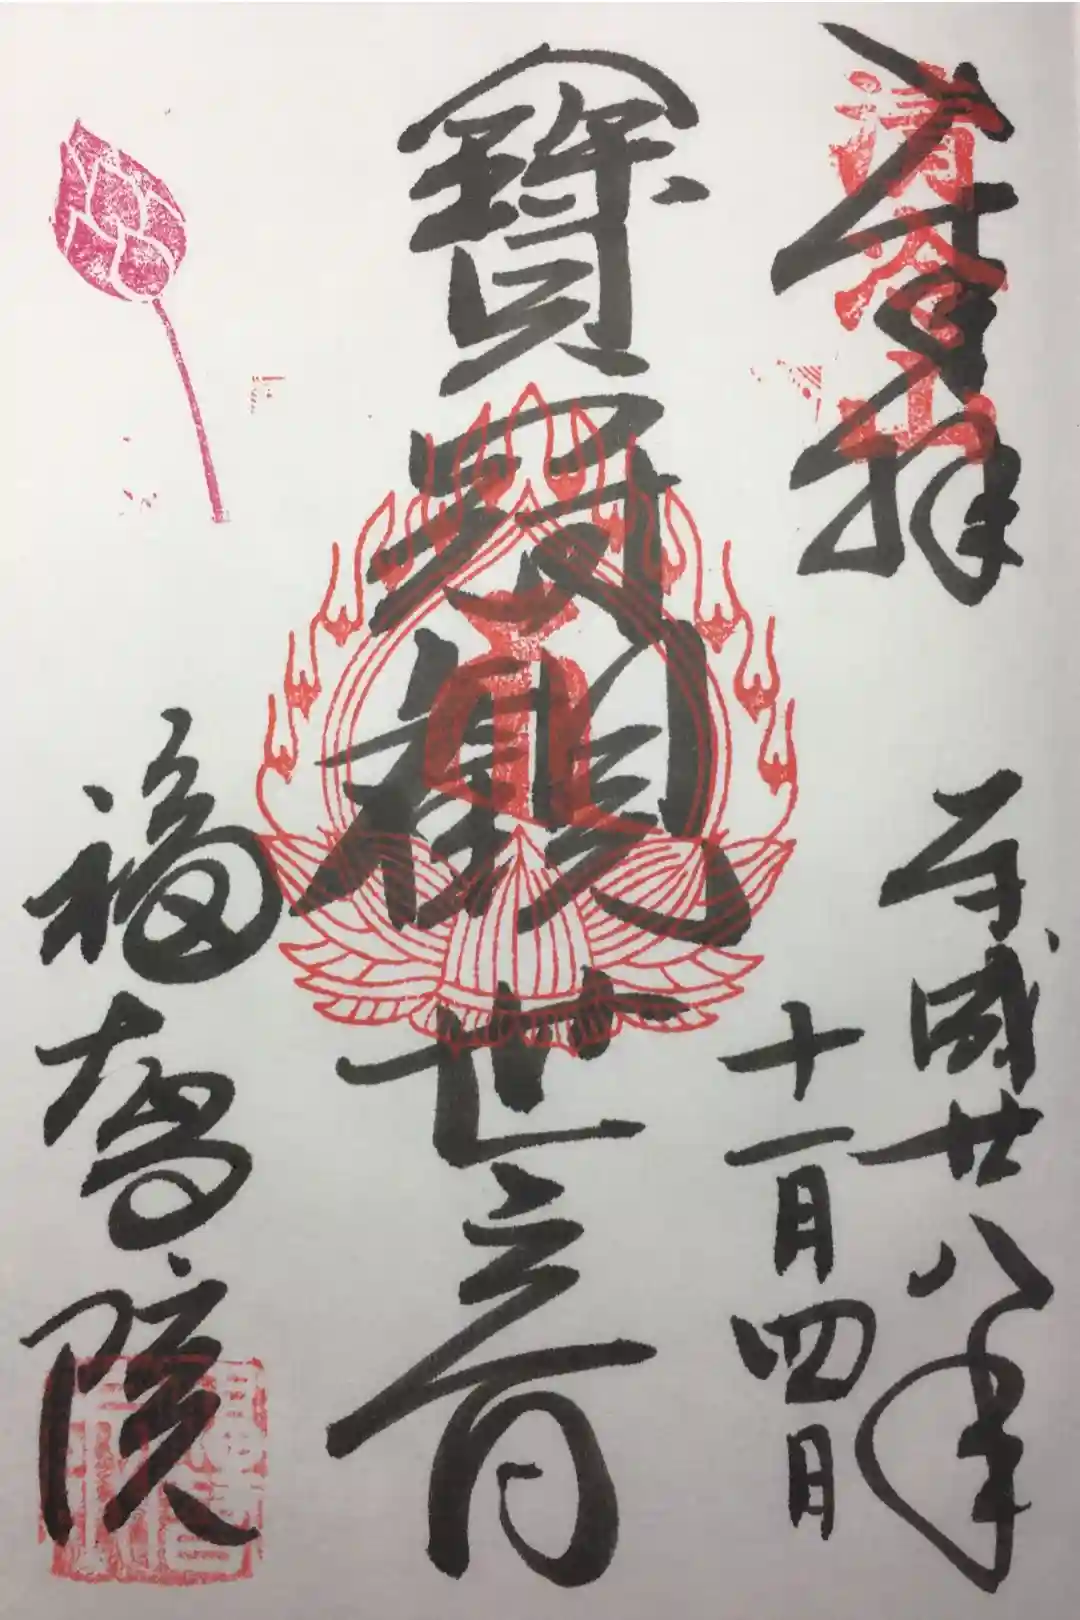 奉拝
清冷山
平成廿八年
十一月四日
寶冠観世音
福智院